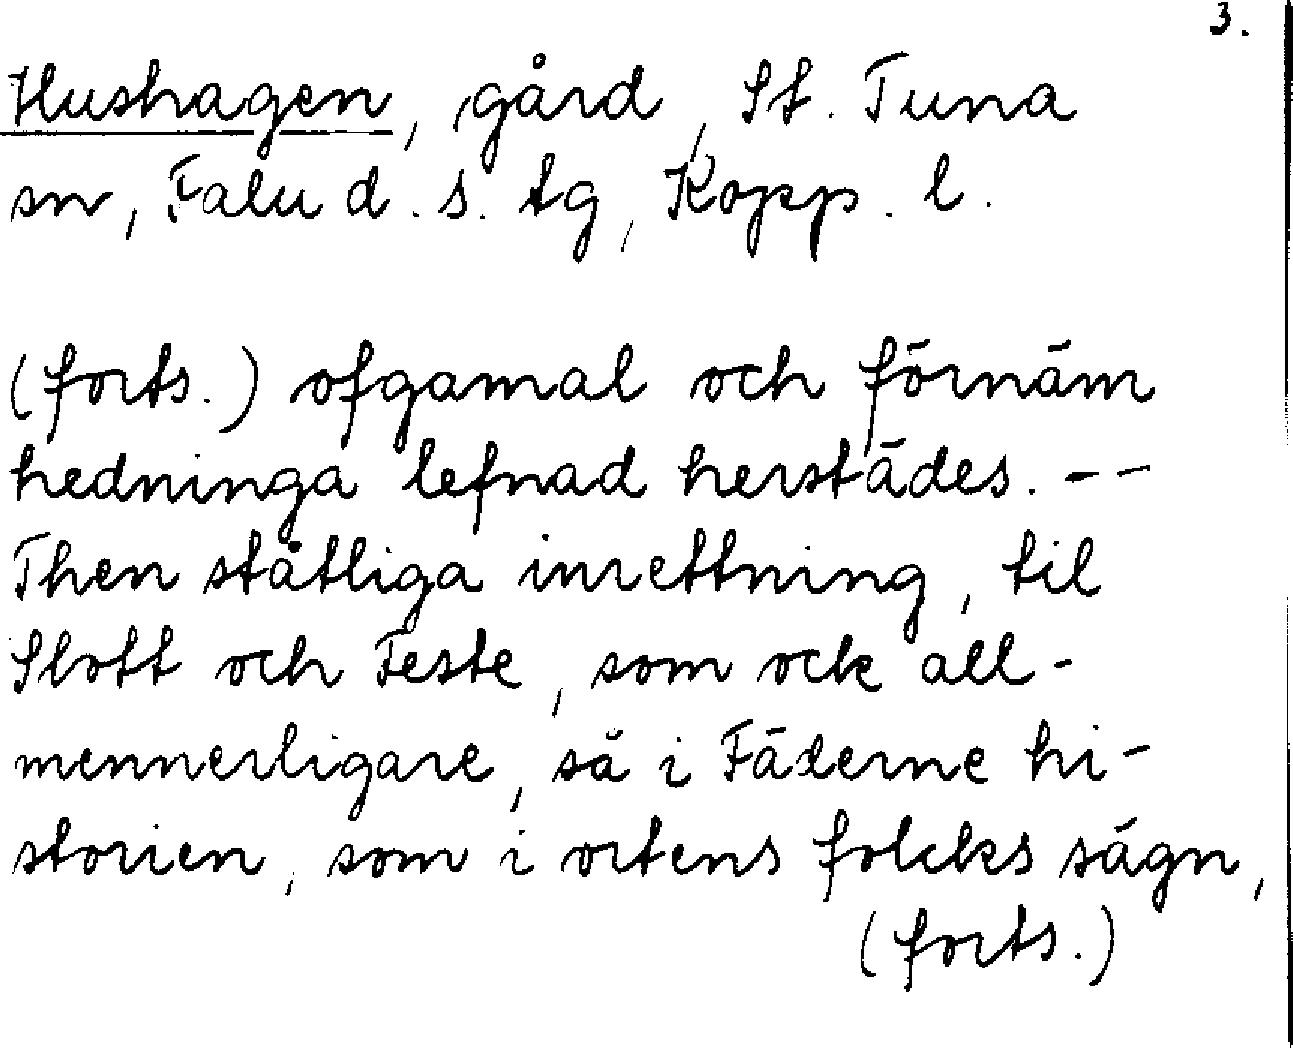 3.
Hushagen, gård, St. Tuna
sn, Falu d. s. tg, Kopp. l.
(forts.) ofgamal och förnäm
hedninga lefnad herstädes. --
Then ståtliga inrettning, til
Slott och Feste, som ock all-
mennerligare, så i Fäderne hi-
storien, som i ortens folcks sägn,
(forts.)